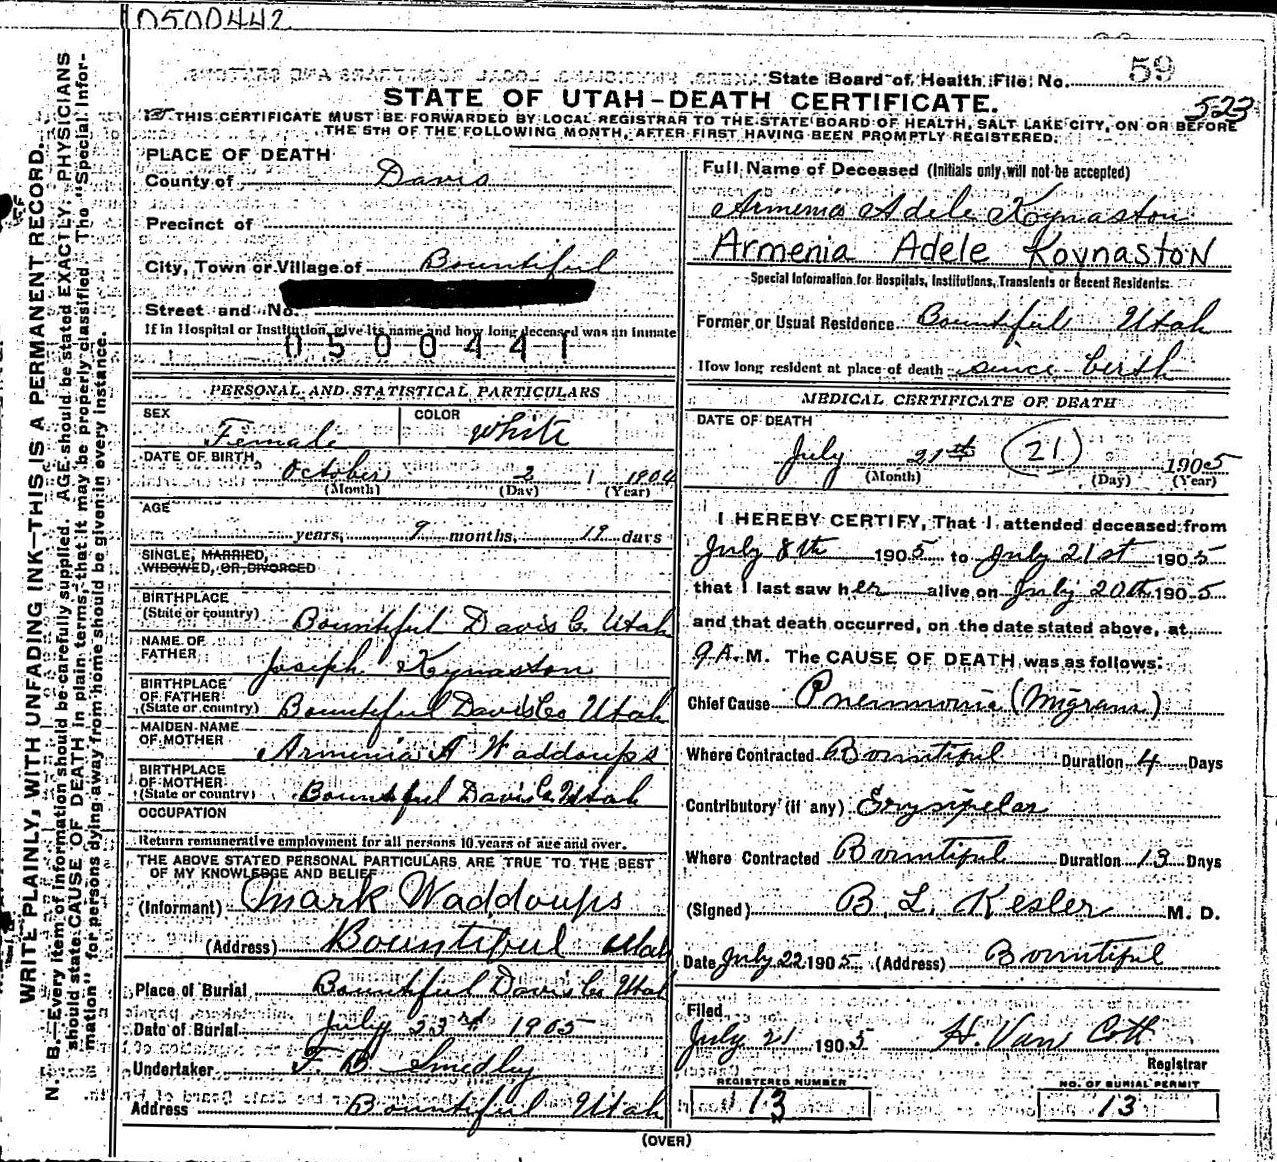 0500442
State Board of Health File No. 59
523
STATE OF UTAH-DEATH CERTIFICATE.
THIS CERTIFICATE MUST BE FORWARDED BY LOCAL REGISTRAR TO THE STATE BOARD OF HEALTH, SALT LAKE CITY, ON OR BEFORE
THE 5TH OF THE FOLLOWING MONTH, AFTER FIRST HAVING BEEN PROMPTLY REGISTERED.
WRITE PLAINLY, WITH UNFADING INK—THIS IS A PERMANENT RECORD.
N. B.—Every item of information should be carefully supplied. AGE should be stated EXACTLY. PHYSICIANS
should state CAUSE OF DEATH in plain terms, that it may be properly classified. The "Special Infor-
mation" for persons dying away from home should be given in every instance.
PLACE OF DEATH
County of Davis
Precinct of
City, Town or Village of Bountiful
Street and No.
If in Hospital or Institution, give its name and how long deceased was an inmate
0500441
PERSONAL AND STATISTICAL PARTICULARS
SEX Female COLOR White
DATE OF BIRTH October 2 1904
(Month) (Day) (Year)
AGE
years, 9 months, 19 days
SINGLE, MARRIED,
WIDOWED, OR DIVORCED
BIRTHPLACE
(State or country) Bountiful Davis Co. Utah
NAME OF
FATHER Joseph Kynaston
BIRTHPLACE
OF FATHER
(State or country) Bountiful Davis Co Utah
MAIDEN NAME
OF MOTHER Armenia A Waddoups
BIRTHPLACE
OF MOTHER
(State or country) Bountiful Davis Co Utah
OCCUPATION
Return remunerative employment for all persons 10 years of age and over.
THE ABOVE STATED PERSONAL PARTICULARS ARE TRUE TO THE BEST
OF MY KNOWLEDGE AND BELIEF
(Informant) Mark Waddoups
(Address) Bountiful Utah
Place of Burial Bountiful Davis Co Utah
Date of Burial July 23rd 1905
Undertaker F. B Smedley
Address Bountiful Utah
Full Name of Deceased (Initials only will not be accepted)
Armenia Adele Kynaston
Armenia Adele Koynaston
Special Information for Hospitals, Institutions, Transients or Recent Residents:
Former or Usual Residence Bountiful Utah
How long resident at place of death since berth
MEDICAL CERTIFICATE OF DEATH
DATE OF DEATH
July 21st (21) 1905
(Month) (Day) (Year)
I HEREBY CERTIFY, That I attended deceased from
July 8th 1905 to July 21st 1905
that I last saw her alive on July 20th 1905
and that death occurred, on the date stated above, at
9 A. M. The CAUSE OF DEATH was as follows:
Chief Cause Pneumonia (Migrans)
Where Contracted Bountiful Duration 4 Days
Contributory (if any) Erysipelas
Where Contracted Bountiful Duration 13 Days
(Signed) B. L. Kesler M. D.
Date July 22 1905 (Address) Bountiful
Filed
July 21 1905 H. Van Cott
Registrar
REGISTERED NUMBER
13
NO. OF BURIAL PERMIT
13
(OVER)